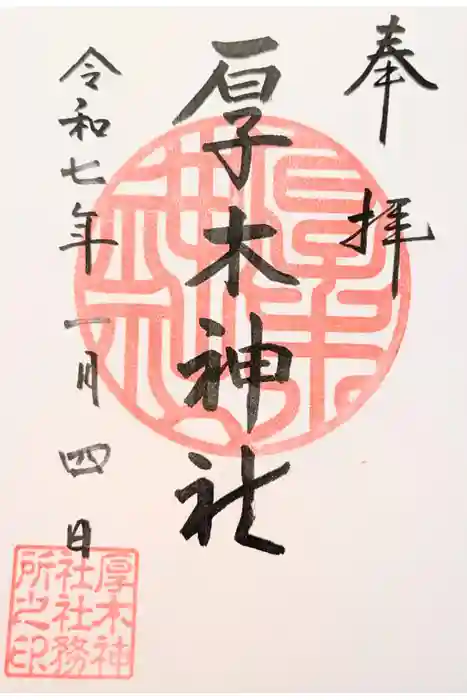 奉拝
厚木神社
令和七年一月四日
厚木神
社社務
所之印